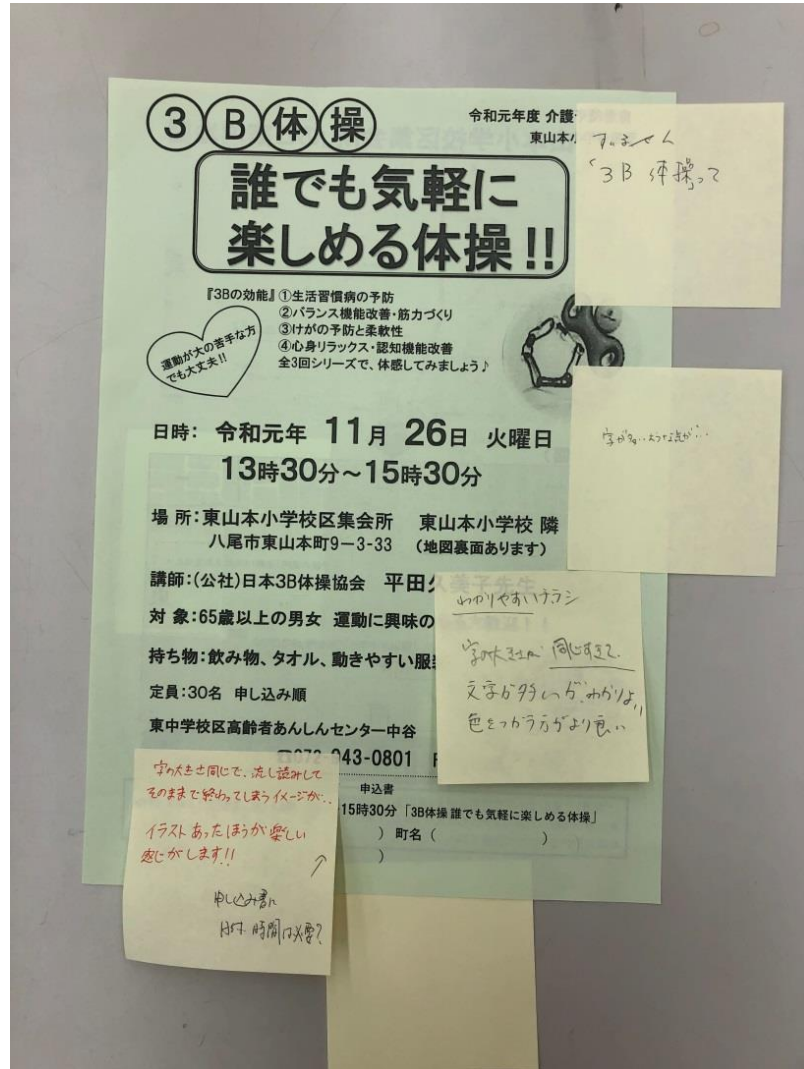 3B体操
令和元年度 介護
東山本小
誰でも気軽に
楽しめる体操!!
『3Bの効能』①生活習慣病の予防
②バランス機能改善・筋力づくり
③けがの予防と柔軟性
④心身リラックス・認知機能改善
全3回シリーズで、体感してみましょう♪
運動が大の苦手な方
でも大丈夫!!
日時: 令和元年 11月 26日 火曜日
13時30分~15時30分
場所:東山本小学校区集会所 東山本小学校 隣
八尾市東山本町9-3-33 (地図裏面あります)
講師:(公社)日本3B体操協会 平田久美子先生
対象:65歳以上の男女 運動に興味の
持ち物:飲み物、タオル、動きやすい服装
定員:30名 申し込み順
東中学校区高齢者あんしんセンター中谷
☎072-943-0801
申込書
15時30分 「3B体操 誰でも気軽に楽しめる体操」
) 町名( )
)
すみません
「3B体操」って
字が多いような気が…
わかりやすいチラシ
字の大きさが同じすぎて、
文字が多い
色をつかう方がより良い
字の大きさ同じで、流し読みして
そのままで終わってしまうイメージが..
イラストあったほうが楽しい
感じがします!!
↑
申し込み書に
日時 時間は必要?